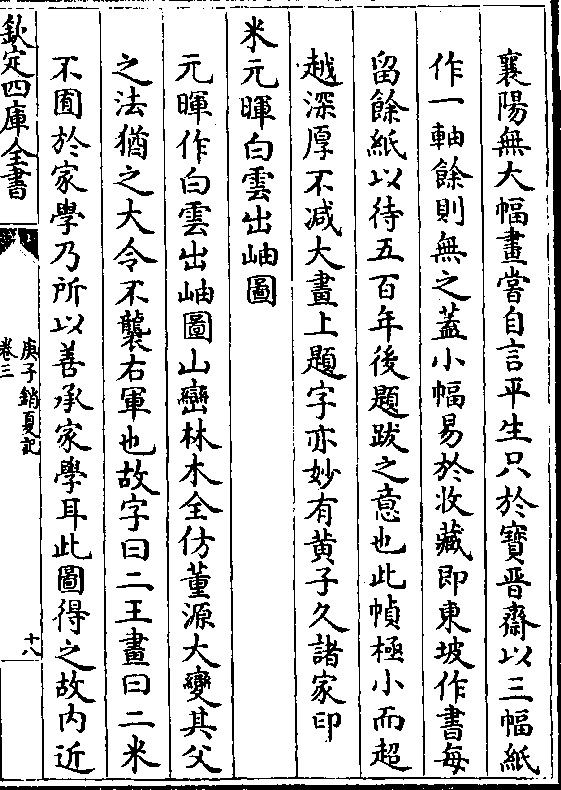 襄陽無大幅畫嘗自言平生只於寶晉齋以三幅紙
作一軸餘則無之蓋小幅易於收藏即東坡作書每
留餘紙以待五百年後題跋之意也此幀極小而超
越深厚不減大畫上題字亦妙有黄子久諸家印
米元暉白雲出岫圖
元暉作白雲出岫圖山巒林木全仿董源大變其父
之法猶之大令不襲右軍也故字曰二王畫曰二米
不囿於家學乃所以善承家學耳此圖得之故内近
欽定四庫全書
庚子銷夏記
卷三
十八